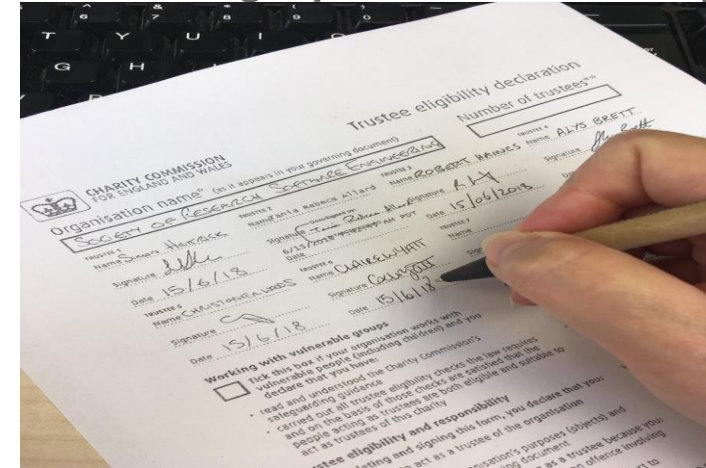 Trustee eligibility declaration
CHARITY COMMISSION
FOR ENGLAND AND WALES
Number of trustees**
Organisation name* (as it appears in your governing document)
SOCIETY OF RESEARCH SOFTWARE ENGINEERING
TRUSTEE 1
Name Simon Hettrick
Signature
Date 15/6/18
TRUSTEE 2
Name Tania Rabeca Allard
Signature Tania Rabeca Allard
6/25/2018 AM PDT
Date
TRUSTEE 3
Name ROBERT HAINES
Signature
Date 15/06/2018
TRUSTEE 4
Name ALYS BRETT
Signature
TRUSTEE 5
Name CHRISTOPHER WOODS
Signature
Date 15/6/18
TRUSTEE 6
Name CLAIRE WYATT
Signature
Date 15/6/18
TRUSTEE 7
Name
Working with vulnerable groups
Tick this box if your organisation works with
vulnerable people (including children) and you
declare that you have:
• read and understood the Charity Commission's
safeguarding guidance
• carried out all trustee eligibility checks the law requires
and on the basis of those checks are satisfied that the
people acting as trustees are both eligible and suitable to
act as trustees of this charity
eligibility and responsibility
and signing this form, you declare that you:
to act as a trustee of the organisation
purposes (objects) and
document
as a trustee because you
an offence involving
T Y U I
G H